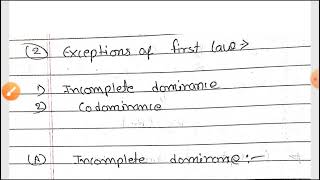 (2) Exceptions of first law >
1) Incomplete dominance
2) Codominance
(A) Incomplete dominance :-